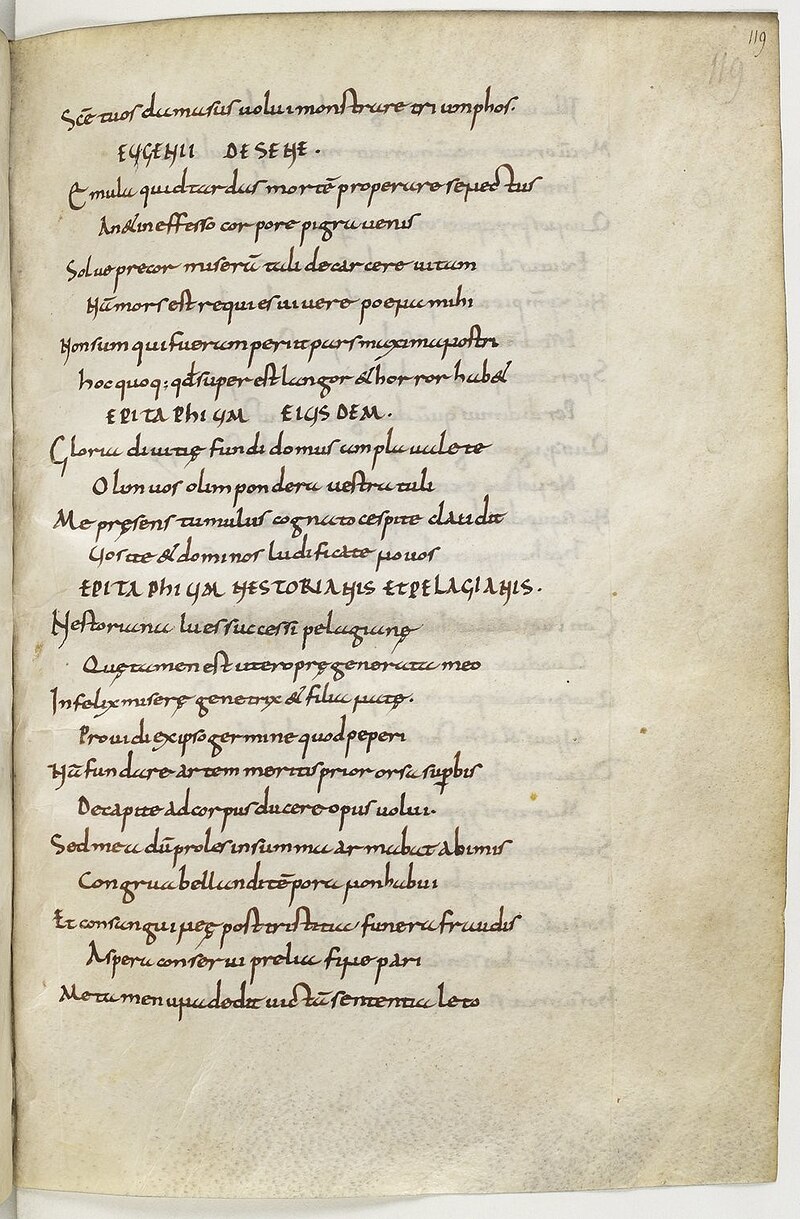 119
119
Scē tuos damasus volui monstrare triumphos.
EUGENII DE SENE.
Emula quid tardas mortē properare senectus
An & in effesso corpore pigra venis
Solve precor miserā tali de carcere vitam
Nā mors est requies vivere poena mihi
Non sum qui fueram periit pars maxima nostri
hoc quoq; qđ superest langor & horror hab&
EPITAPHIUM EIUSDEM.
Gloria divitię fundi domus ampla valete
Olim vos olim pondera vestra tuli
Me pręsens tumulus cognato cespite claudit
Vos ite & dominos ludificate novos
EPITAPHIUM NESTORIANIS ET PELAGIANIS.
Nestoriana lues successi pelagianę
Quę tamen est utero pręgenerata meo
Infelix miserę genetrix & filia natę.
Prouidi ex ipso germine quod peperi
Nā fundare artem meritis prior orsa sup̄bis
De capite ad corpus ducere opus volui.
Sed mea dū proles in summa armabat ab imis
Congrua bellandi tēpora non habui
Et consanguineę post tristitia funera fraudis
Aspera conserui prelia fine pari
Me tamen una dedit victā sententia leto